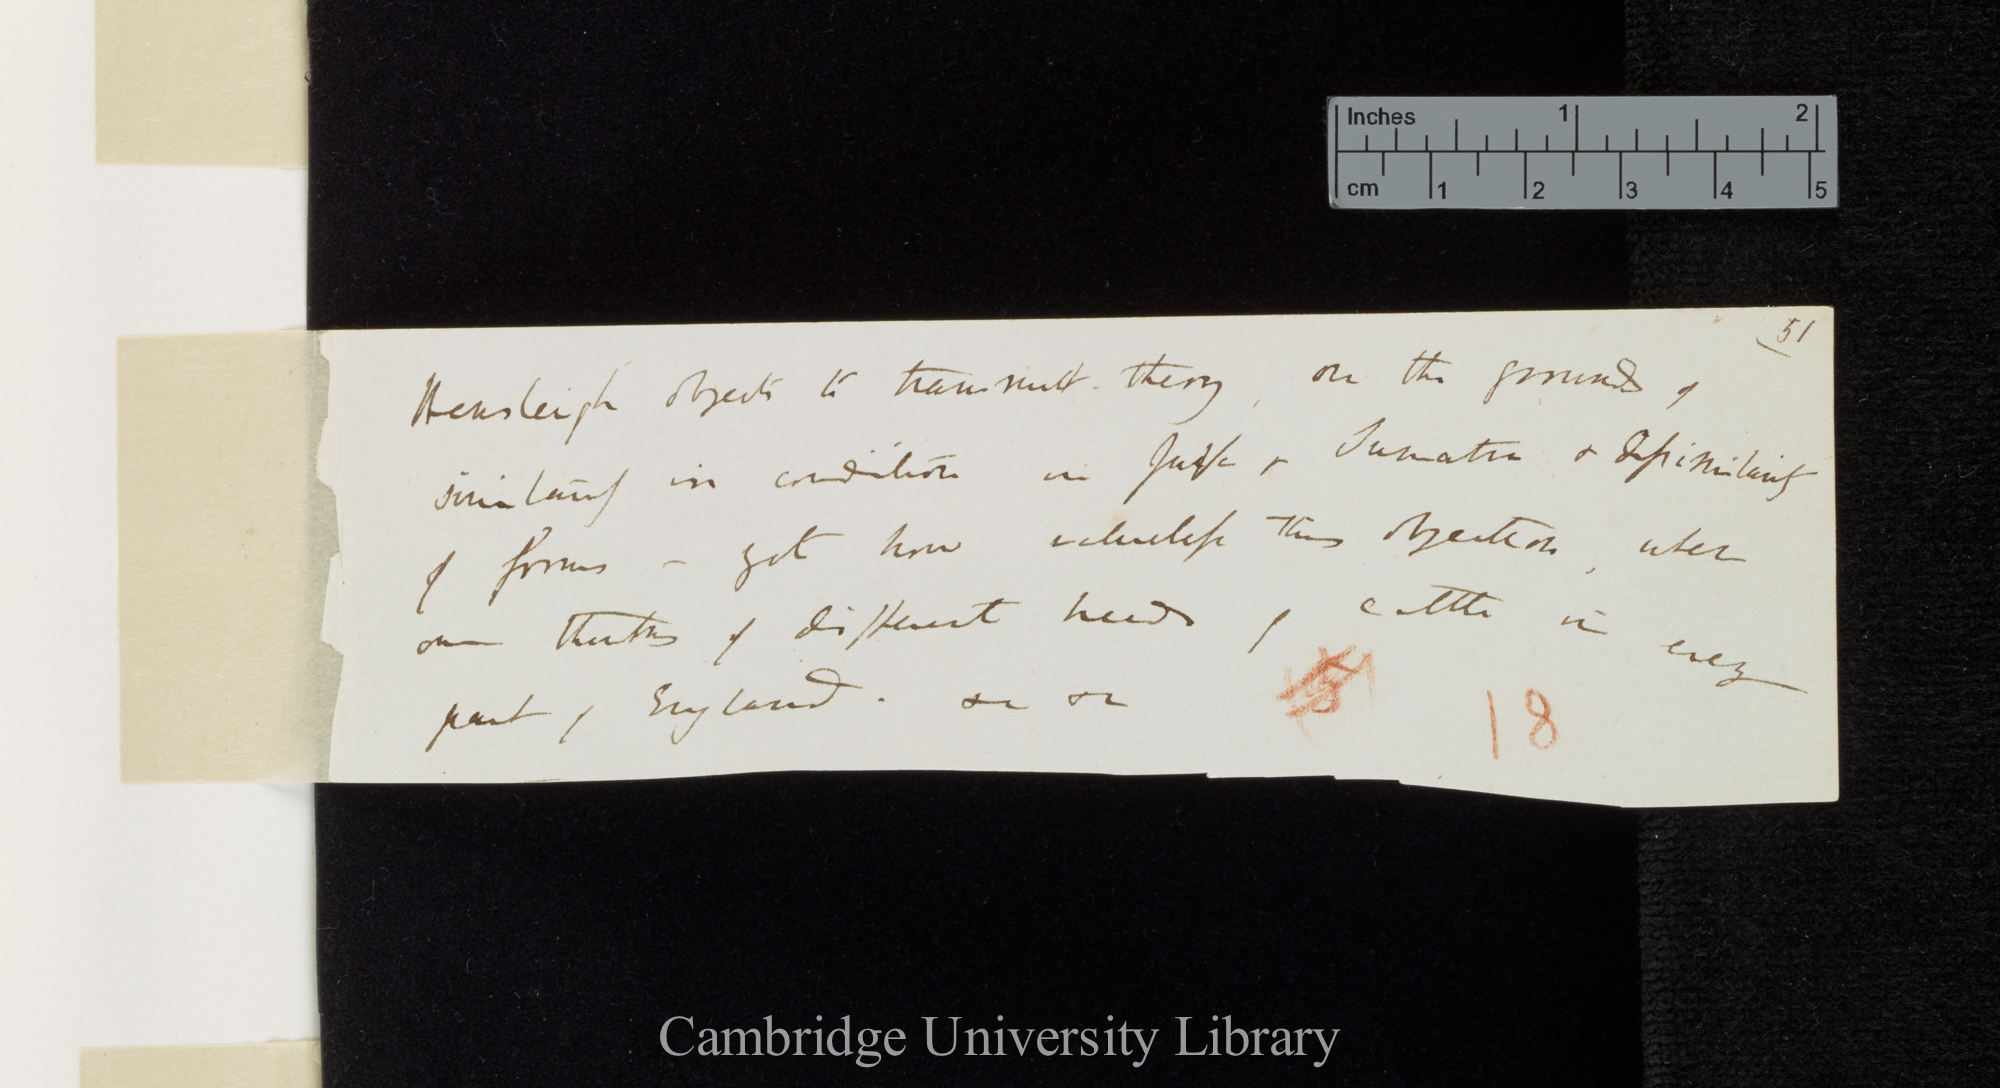 Inches 1 2
cm 1 2 3 4 5
51
Hensleigh objects to transmut. theory, on the grounds of
similarity in condition in & Sumatra & dissimilarity
of forms – yet how valueless this objection, when
one thinks of different breeds of cattle in every
part of England. &c &c
18
Cambridge University Library